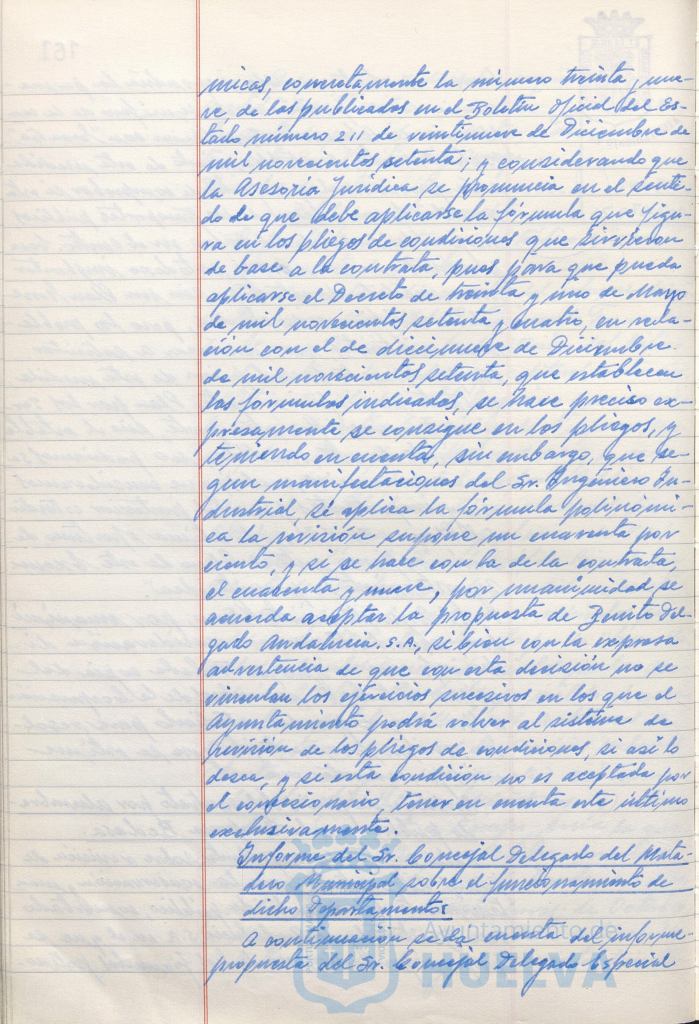 micas, concretamente la número treinta y nue-
ve, de las publicadas en el Boletín Oficial del Es-
tado número 311 de veintinueve de Diciembre de
mil novecientos setenta; y considerando que
la Asesoría Jurídica se pronuncia en el senti-
do de que debe aplicarse la fórmula que figu-
ra en los pliegos de condiciones que sirvieron
de base a la contrata, pues para que pueda
aplicarse el Decreto de treinta y uno de Marzo
de mil novecientos setenta y cuatro, en rela-
ción con el de diecinueve de Diciembre
de mil novecientos setenta, que establecen
las fórmulas indicadas, se hace preciso ex-
presamente se consigne en los pliegos, y
teniendo en cuenta, sin embargo, que se-
gun manifestaciones del Sr. Ingeniero In-
dustrial, si aplica la fórmula polinómi-
ca la revisión supone un cuarenta por
ciento, y si se hace con la de la contrata,
el cuarenta y nueve, por unanimidad se
acuerda aceptar la propuesta de Benito Del-
gado Andalucía. S.A., si bien con la expresa
advertencia de que con esta decisión no se
vinculan los ejercicios sucesivos en los que el
Ayuntamiento podrá volver al sistema de
revisión de los pliegos de condiciones, si así lo
desea, y si esta condición no es aceptada por
el concesionario, tener en cuenta este último
exclusivamente.
Informe del Sr. Concejal Delegado del Mata-
dero Municipal sobre el funcionamiento de
dicho Departamento:
A continuación se da cuenta del informe-
propuesta del Sr. Concejal Delegado Especial
Ayuntamiento de
HUELVA